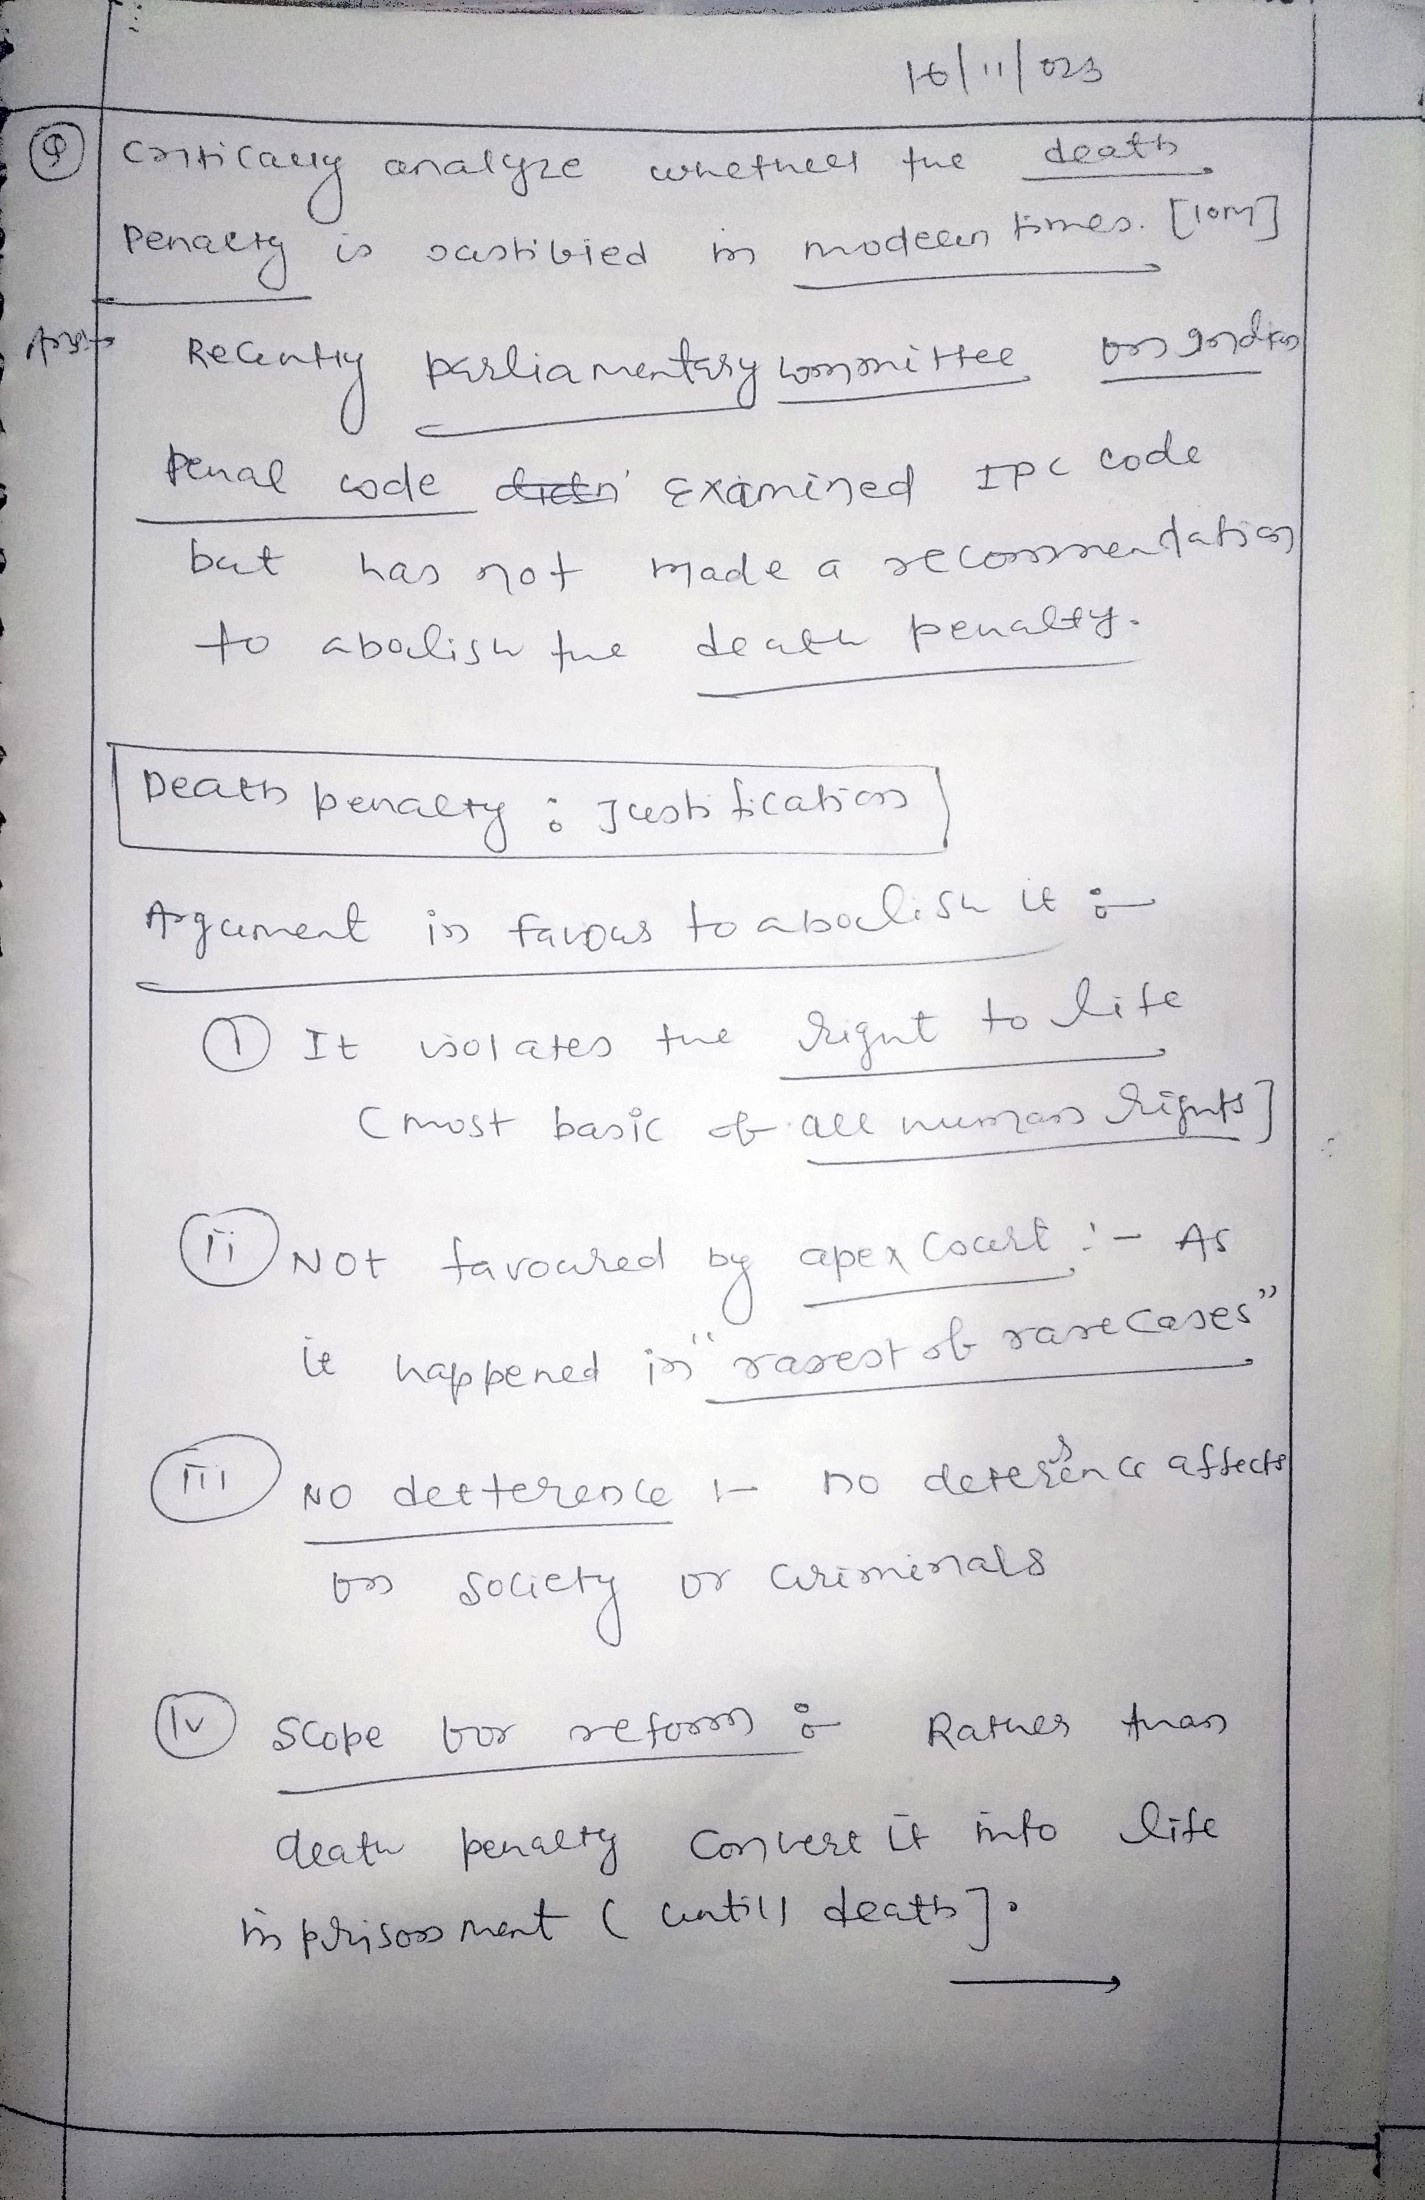 16/11/023
Q Critically analyze whether the death
Penalty is Justified in modern times. [10m]
Ans→ Recently parliamentary committee on Indian
Penal code examined IPC code
but has not made a recommendation
to abolish the death penalty.
Death penalty : Justification
Argument in favour to abolish it :-
(I) It violates the right to life
(most basic of all human rights]
(ii) Not favoured by apex court :- As
it happened in "rarest of rare cases"
(iii) No detterence :- no deterence affects
on society or criminals
(iv) Scope for reform :- Rather than
death penalty convert it into life
imprisonment ( untill death].